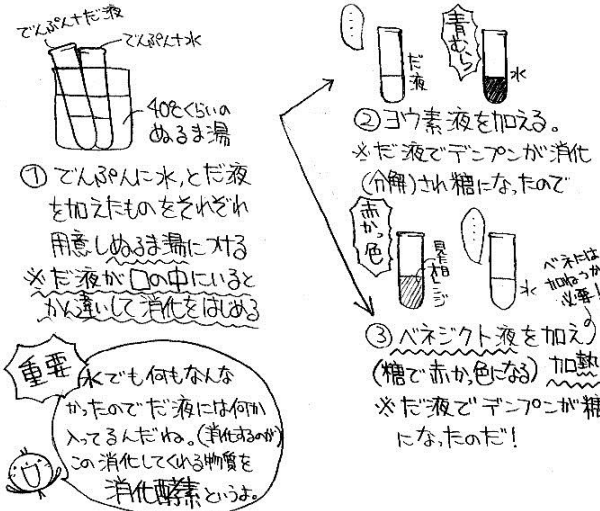 でんぷん+だ液
でんぷん+水
40℃くらいの
ぬるま湯
①でんぷんに水,とだ液
を加えたものをそれぞれ
用意しぬるま湯につける
※だ液が口の中にいると
かん違いして消化をはじめる
重要
水でも何もなんな
かったのでだ液には何か
入ってるんだね。(消化するのが)
この消化してくれる物質を
消化酵素というよ。
……
だ液
青むらさき
水
②ヨウ素液を加える。
※だ液でデンプンが消化
(分解)され糖になったので
赤かっ色
見た目オレンジ
……
水
ベネには
加ねつが
必要!
③ベネジクト液を加え
(糖で赤かっ色になる)加熱
※だ液でデンプンが糖
になったのだ!